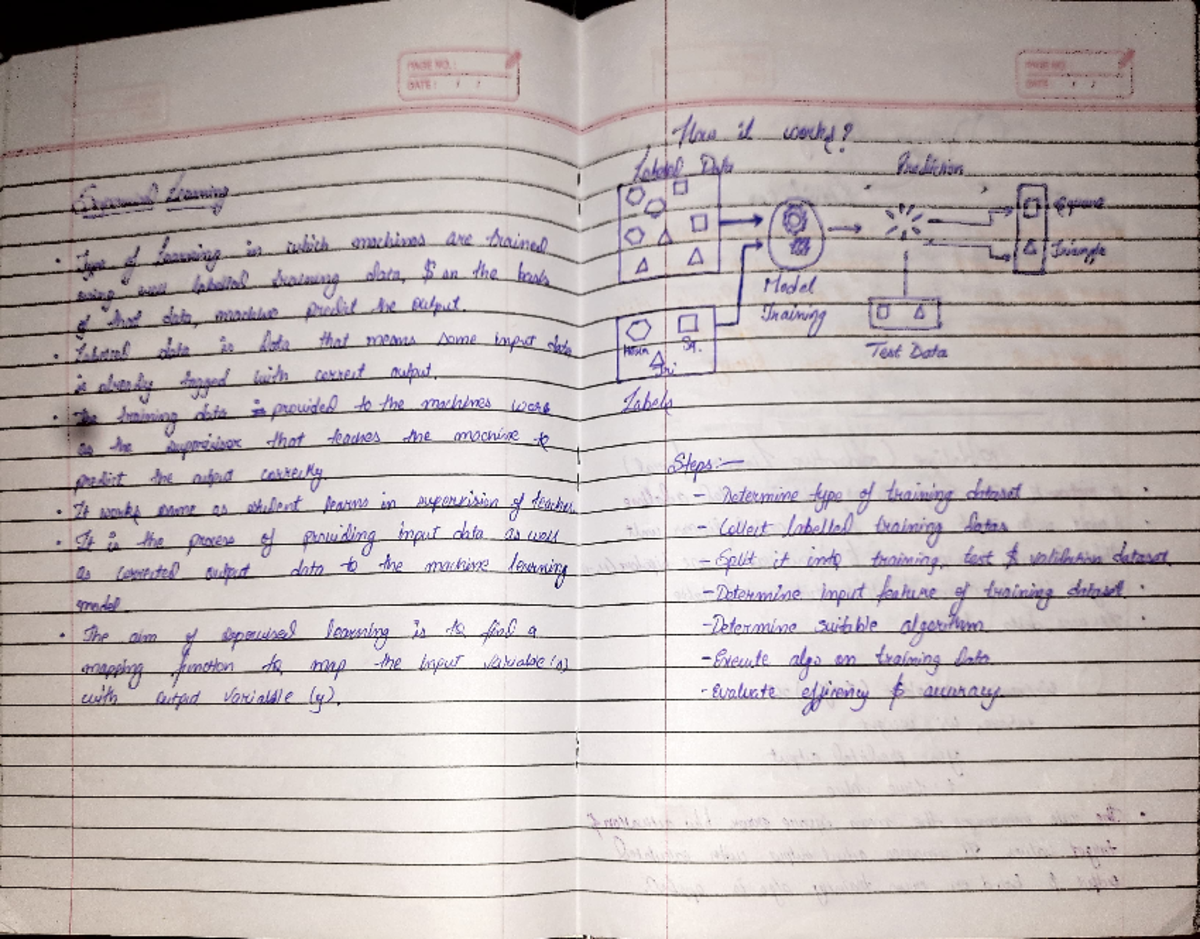 PAGE NO.:
DATE: / /
Supervised Learning
• Type of learning in which machines are trained
using well labelled training data, $ on the basis
of that data, machines predict the output.
• Labelled data is data that means some input data
is already tagged with correct output.
• The training data is provided to the machines work
as the supervisor that teaches the machine to
predict the output correctly.
• It works same as student learns in supervision of teacher.
• It is the process of providing input data as well
as corrected output data to the machine learning
model.
• The aim of supervised learning is to find a
mapping function to map the input variable(x)
with output variable (y).
PAGE NO.
DATE: / /
How it works?
Labeled Data
Prediction
Square
Triangle
Model
Training
Sq.
Tri
Test Data
Labels
Steps:—
- Determine type of training dataset
- Collect labelled training datas
- Split it into training, test $ validation dataset
- Determine input feature of training dataset
- Determine suitable algorithm
- Execute algo on training data
- Evaluate efficiency $ accuracy